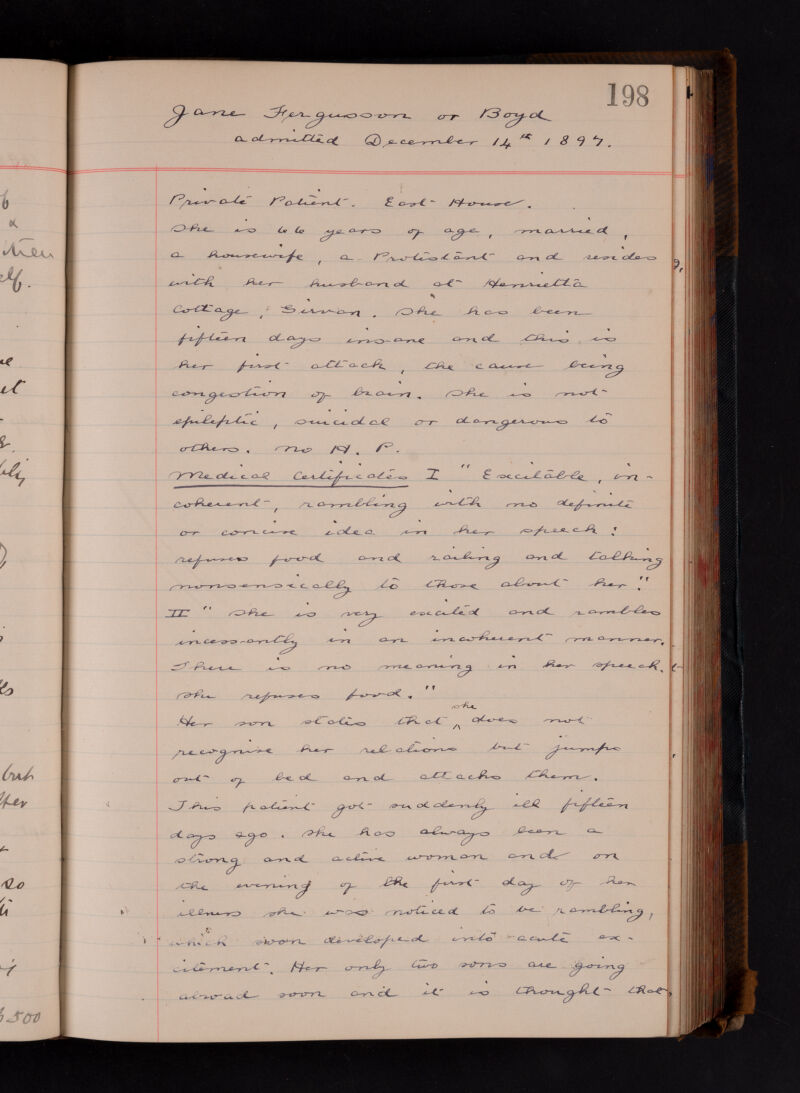 198
Jane Fergusson or Boyd
admitted December 14th 1897.
Private Patient. East House.
She is 66 years of age, married,
a housewife, a Protistant and resides
with her husband at Henrietta
Cottage, Girvan. She has been
fifteen days insane and this is
her first attack, the cause being
congestion of brain. She is not
epileptic, suicidal or dangerous to
others. No H. P.
Medical Certificates I "Excitable, in-
coherent, rambling with no definite
or concise idea in her speech:
refuses food and railing and talking
nonsensically to those about her".
II "She is very excited and rambles
incessantly in an incoherent manner.
There is no meaning in her speech.
She refuses food."
Her son states that she does not
recognise her relations but jumps
out of bed and attacks them.
This patient got suddenly ill fifteen
days ago. She has always been a
strong and active woman and on
the evening of the first day of her
illness she was noticed to be rambling,
which soon developed into acute ex-
citement. Her only two sons are going
abroad soon and it is thought that